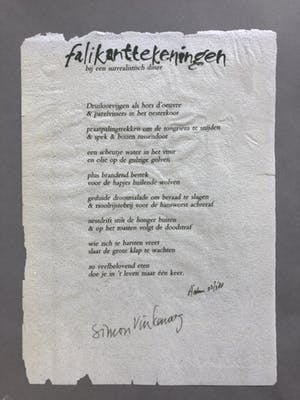 falikanttekeningen
bij een surrealistisch diner
Druiloorvijgen als hors d'oeuvre
& parelvissers in het oesterkoor
praatpalingtrekken om de tongriem te snijden
& spek & bozen tussendoor
een scheutje water in het vuur
en olie op de gulzige golven
plus brandend bestek
voor de hapjes huilende wolven
geduide droomsalade om beraad te slagen
& rioolrijstebrij voor de hansworst achteraf
nestdrift stilt de honger buiten
& op het toasten volgt de doodstraf
wie zich te barsten vreet
slaat de grote klap te wachten
zo veelbelovend eten
doe je in 't leven maar één keer.
Simon Vinkenoog